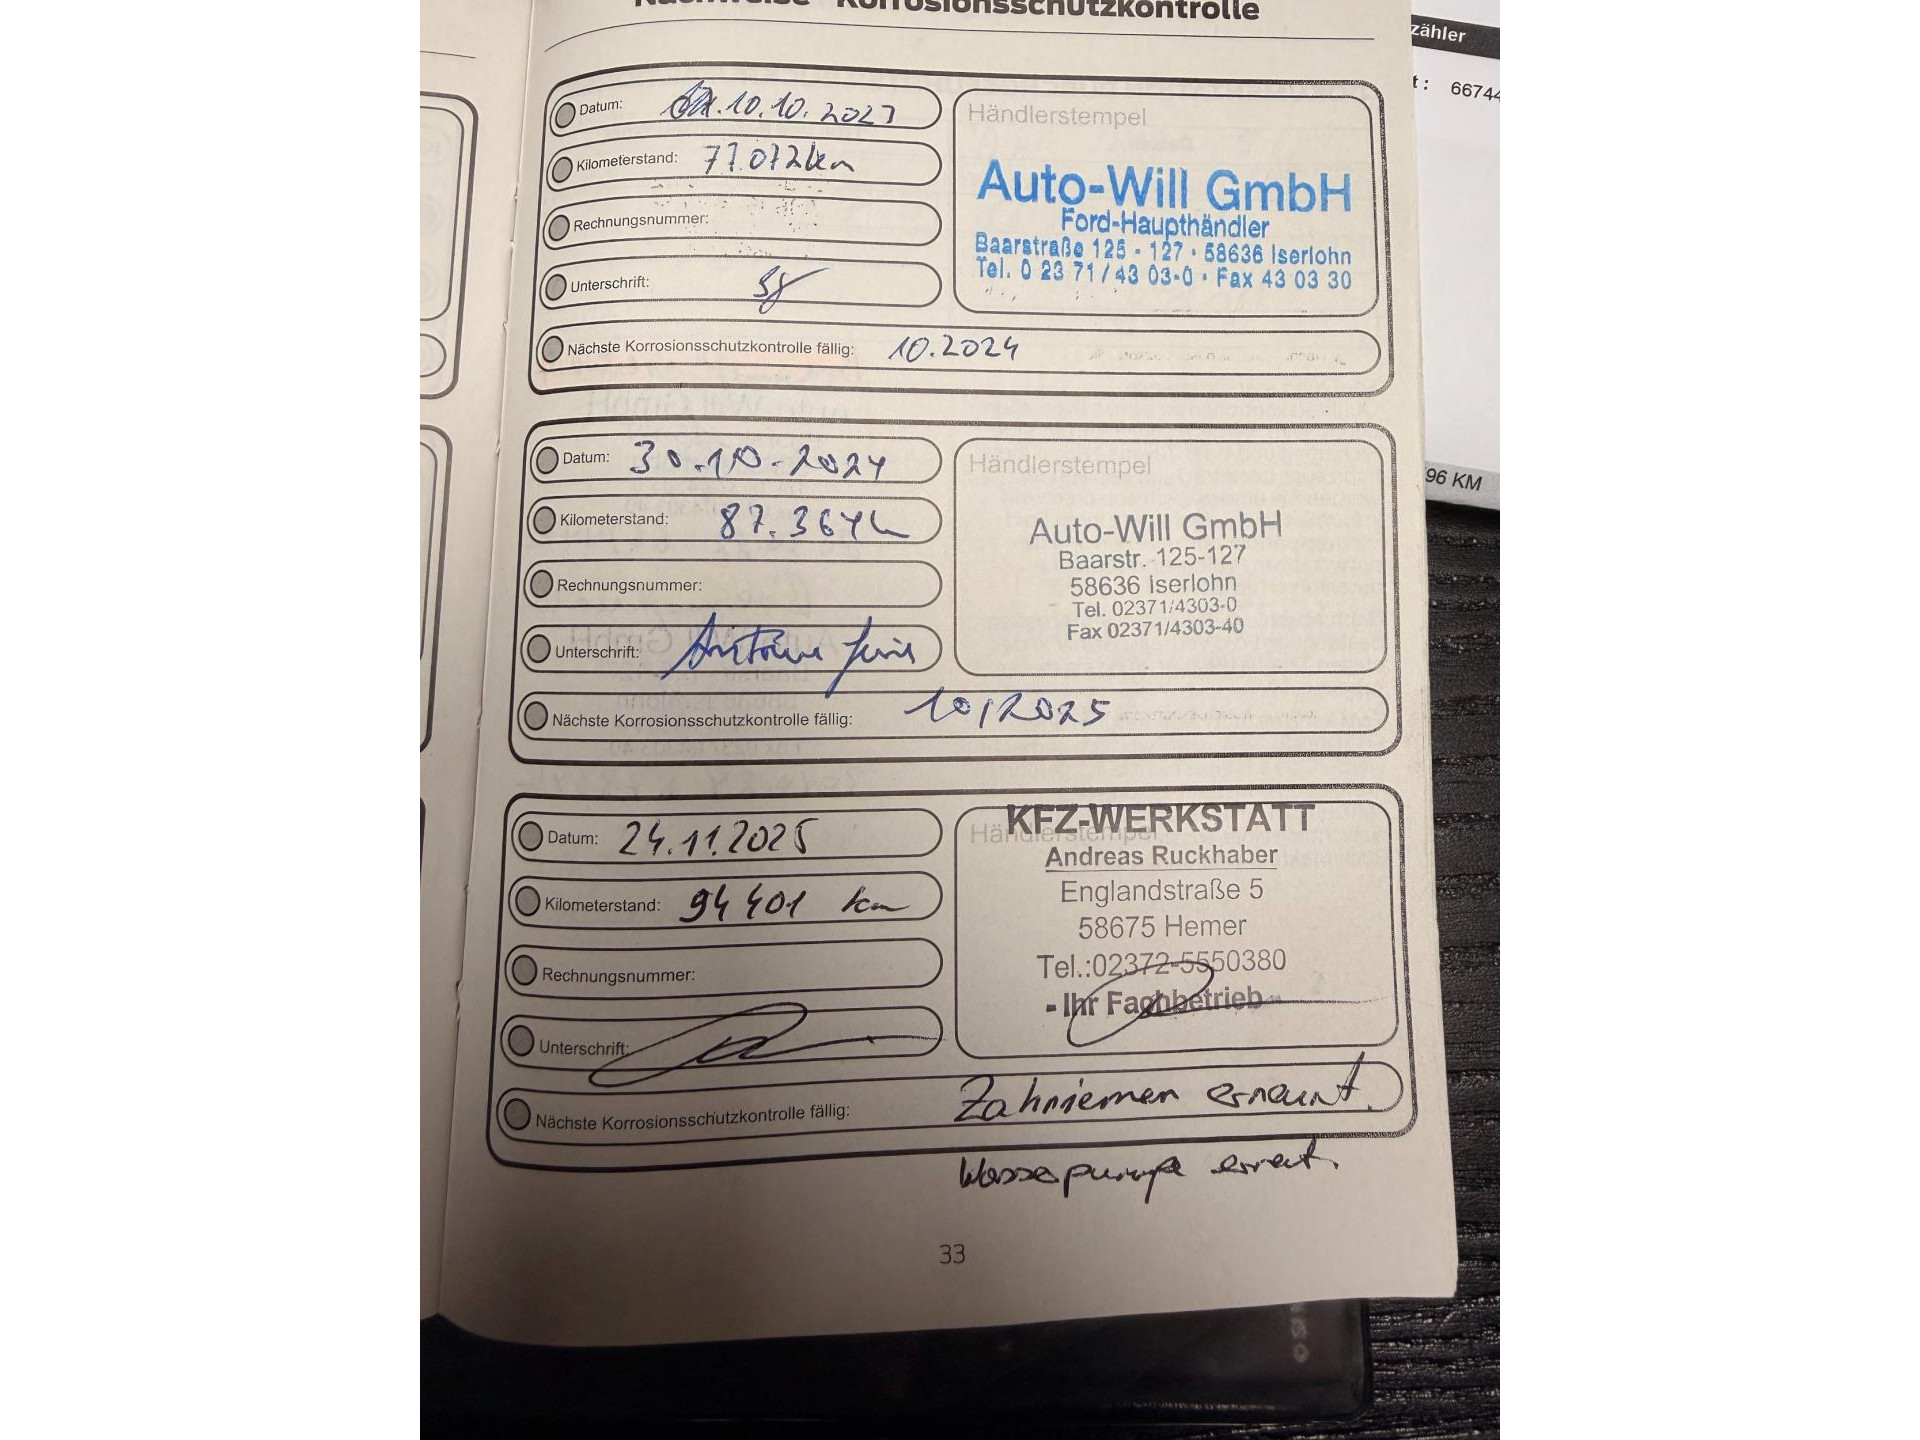 Nachweise Korrosionsschutzkontrolle
zähler
t: 66744
96 KM
Datum: 10.10.2023
Kilometerstand: 77.072km
Rechnungsnummer:
Unterschrift:
Nächste Korrosionsschutzkontrolle fällig: 10.2024
Händlerstempel
Auto-Will GmbH
Ford-Haupthändler
Baarstraße 125 - 127 · 58636 Iserlohn
Tel. 0 23 71 / 43 03-0 · Fax 43 03 30
Datum: 30.10.2024
Kilometerstand: 87.364
Rechnungsnummer:
Unterschrift:
Nächste Korrosionsschutzkontrolle fällig: 10/2025
Händlerstempel
Auto-Will GmbH
Baarstr. 125-127
58636 Iserlohn
Tel. 02371/4303-0
Fax 02371/4303-40
Datum: 24.11.2025
Kilometerstand: 94 401 km
Rechnungsnummer:
Unterschrift:
Nächste Korrosionsschutzkontrolle fällig: Zahnriemen erneurt.
Händlerstempel
KFZ-WERKSTATT
Andreas Ruckhaber
Englandstraße 5
58675 Hemer
Tel.:02372-5550380
- Ihr Fachbetrieb -
Wasserpumpe
33